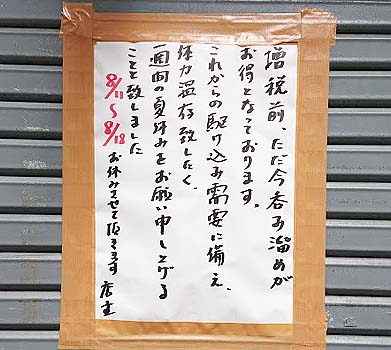 増税前、ただ今呑み溜めが
お得となっております。
これからの駆け込み需要に備え、
体力温存致したく、
一週間の夏休みをお願い申し上げる
ことと致しました
8/11～8/18
お休みさせて頂きます 店主